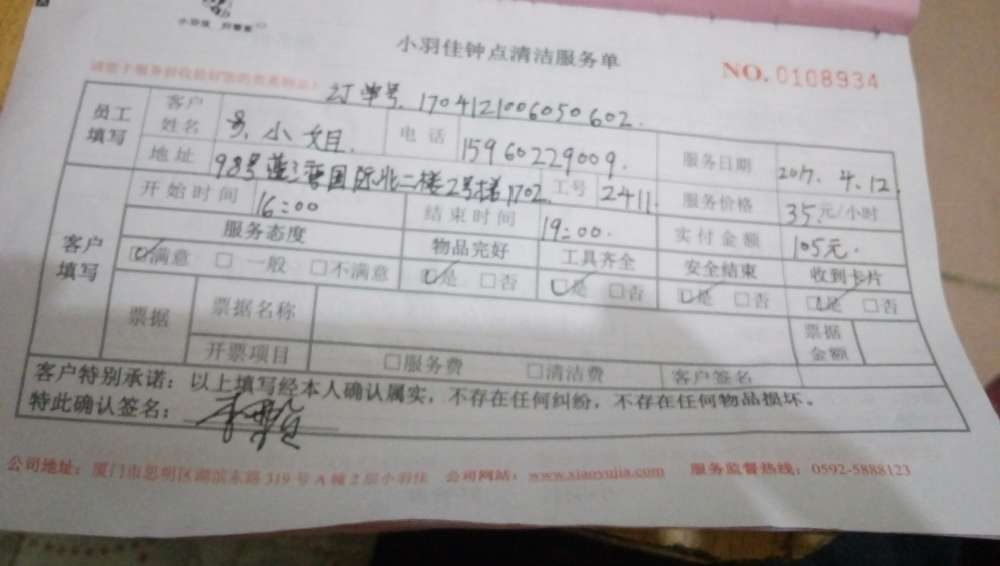 小羽佳钟点清洁服务单
NO. 0108934
订单号. 1704121006050602.
员工填写 客户姓名 小姐. 电话 15960229009. 服务日期 2017. 4. 12.
地址 98号 国际北二楼2号梯1702. 工号 2411 服务价格 35.元/小时
客户填写 开始时间 16:00 结束时间 19:00. 实付金额 105元.
服务态度 物品完好 工具齐全 安全结束 收到卡片
☑满意 □一般 □不满意 ☑是 □否 ☑是 □否 ☑是 □否 ☑是 □否
票据 票据名称 票据金额
开票项目 □服务费 □清洁费 客户签名
客户特别承诺：以上填写经本人确认属实，不存在任何纠纷，不存在任何物品损坏。
特此确认签名：
公司地址：厦门市思明区湖滨东路319号A幢2层小羽佳 公司网站：www.xiaoyujia.com 服务监督热线：0592-5888123